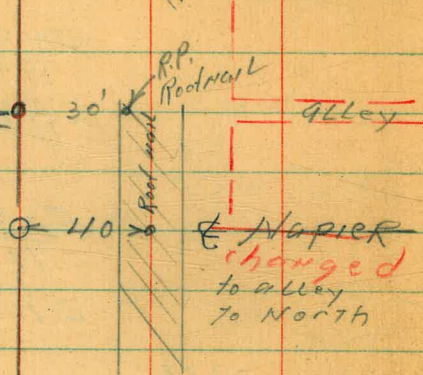 R.P.
Roofnail
30'
alley
Roof nail
40
℄ Napier
changed
to alley
to North